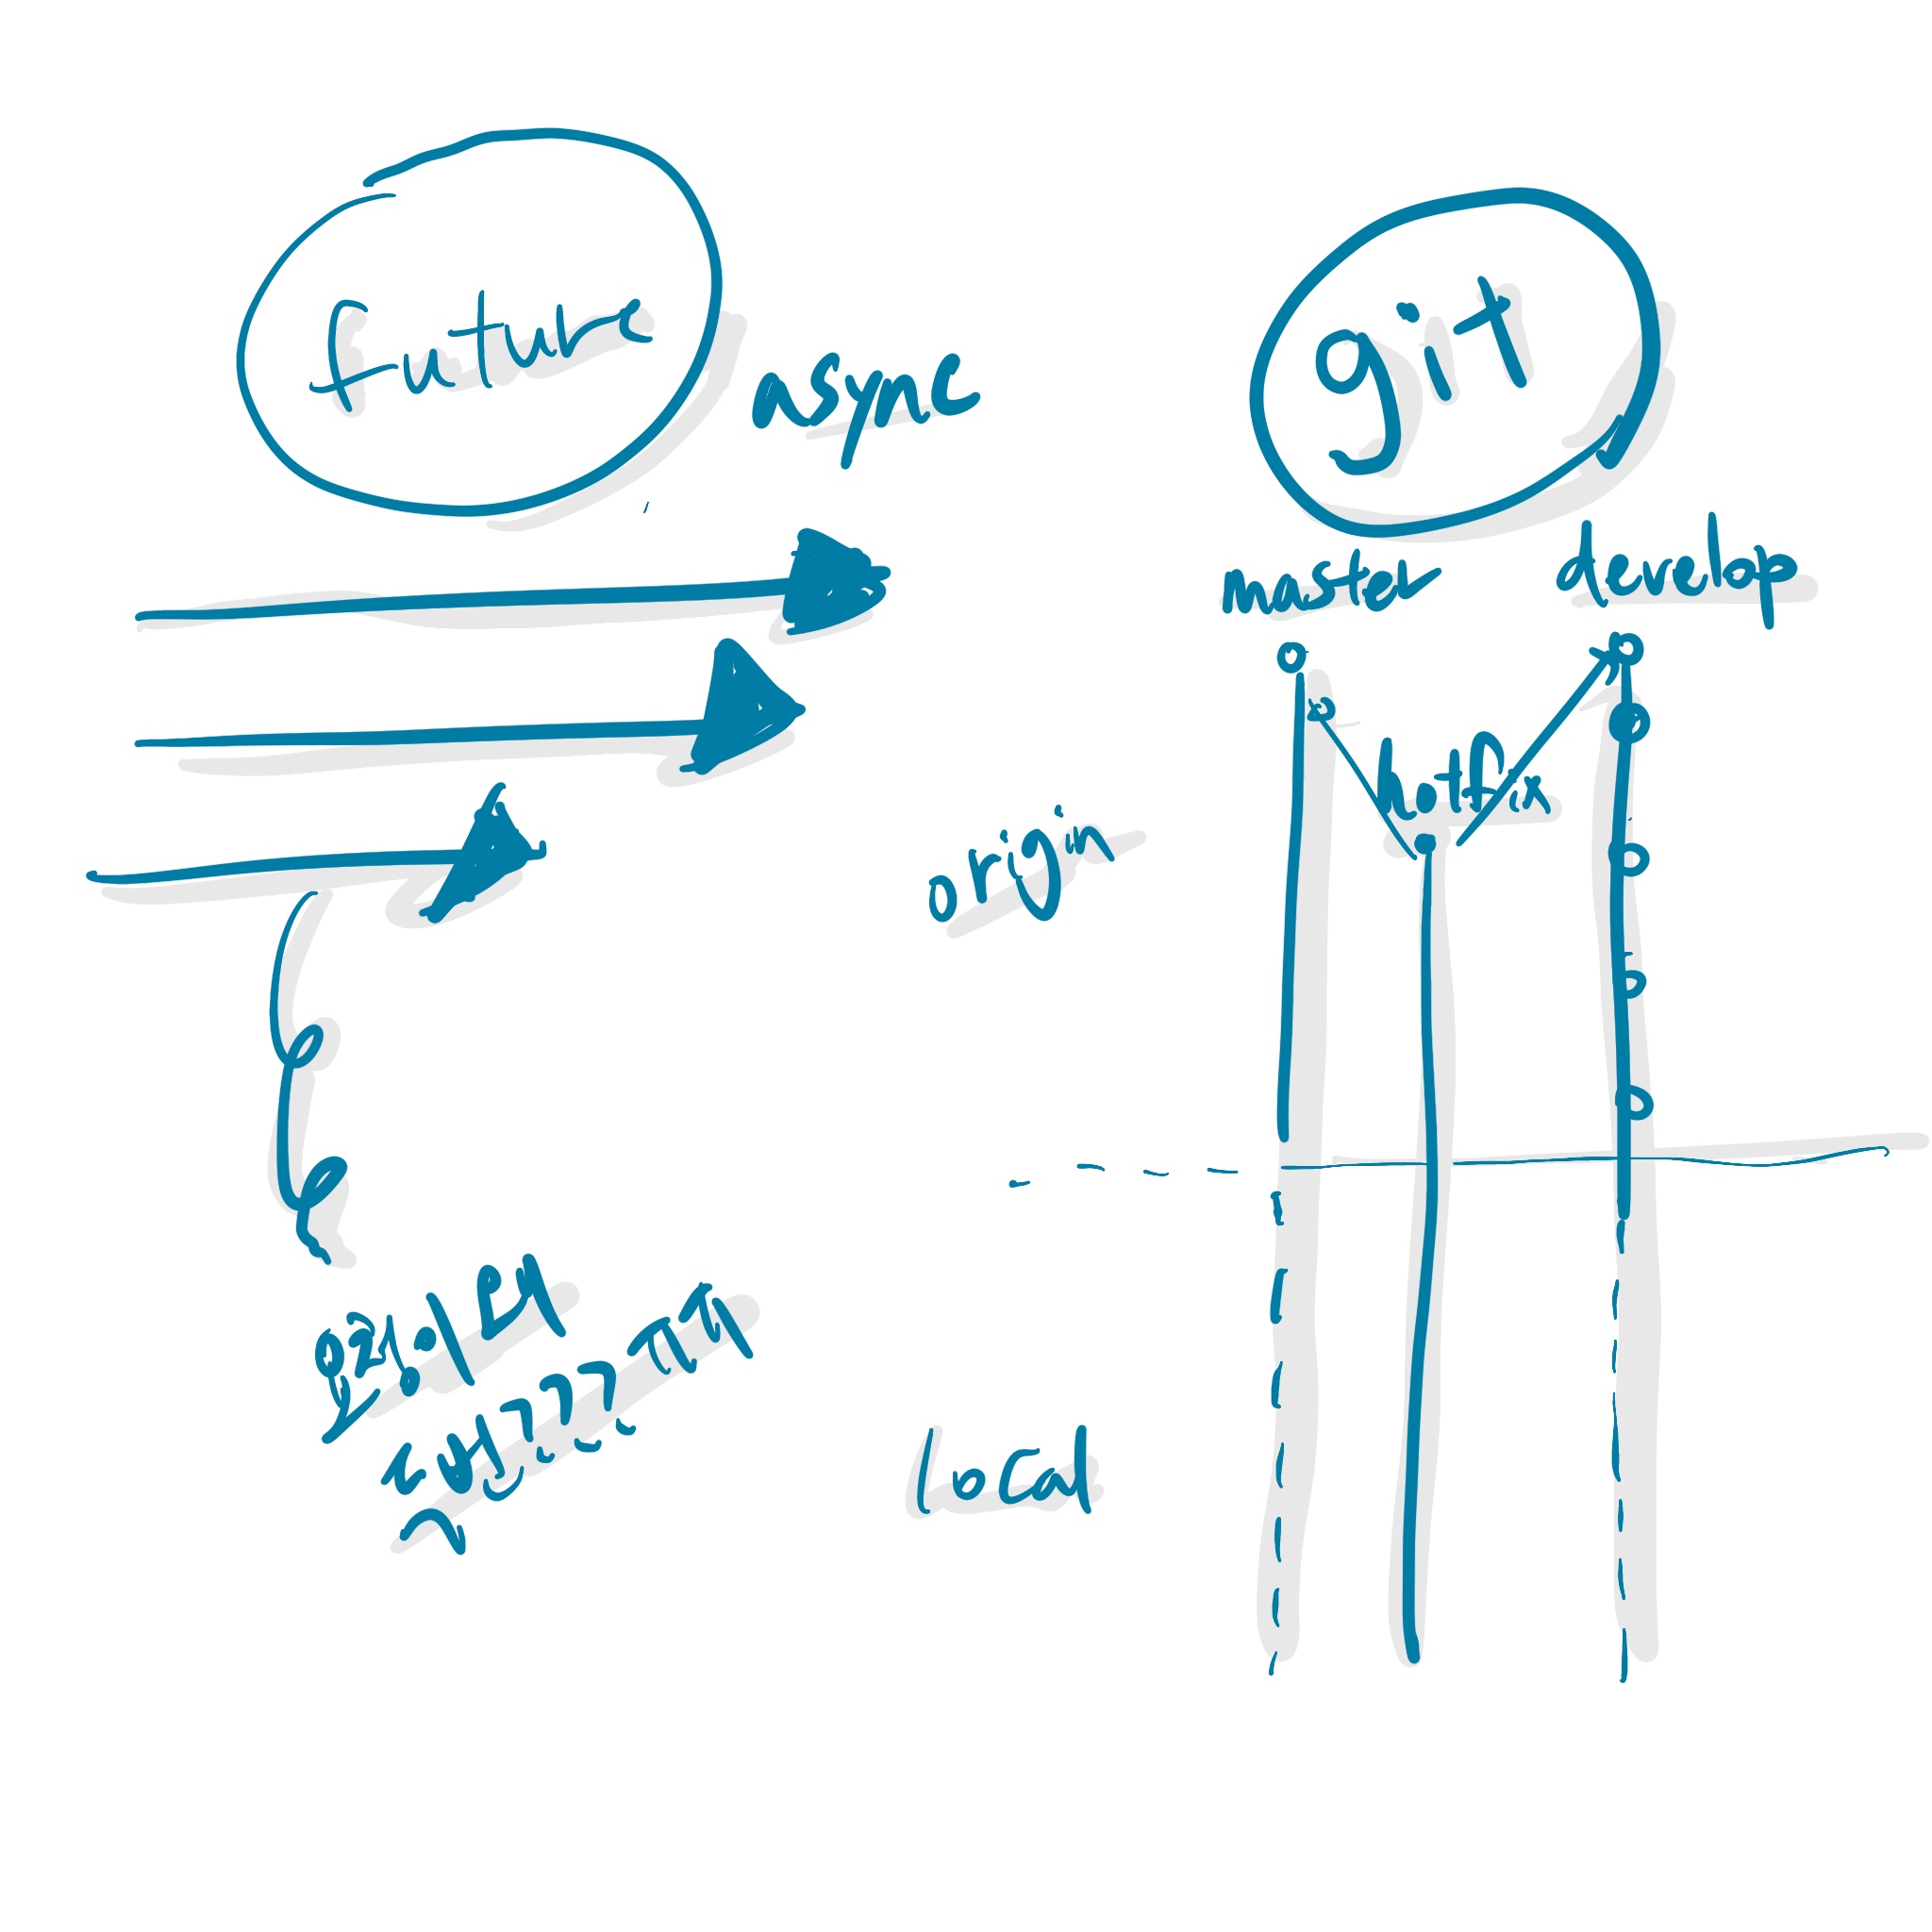 future
async
git
master
develop
hotfix
origin
local